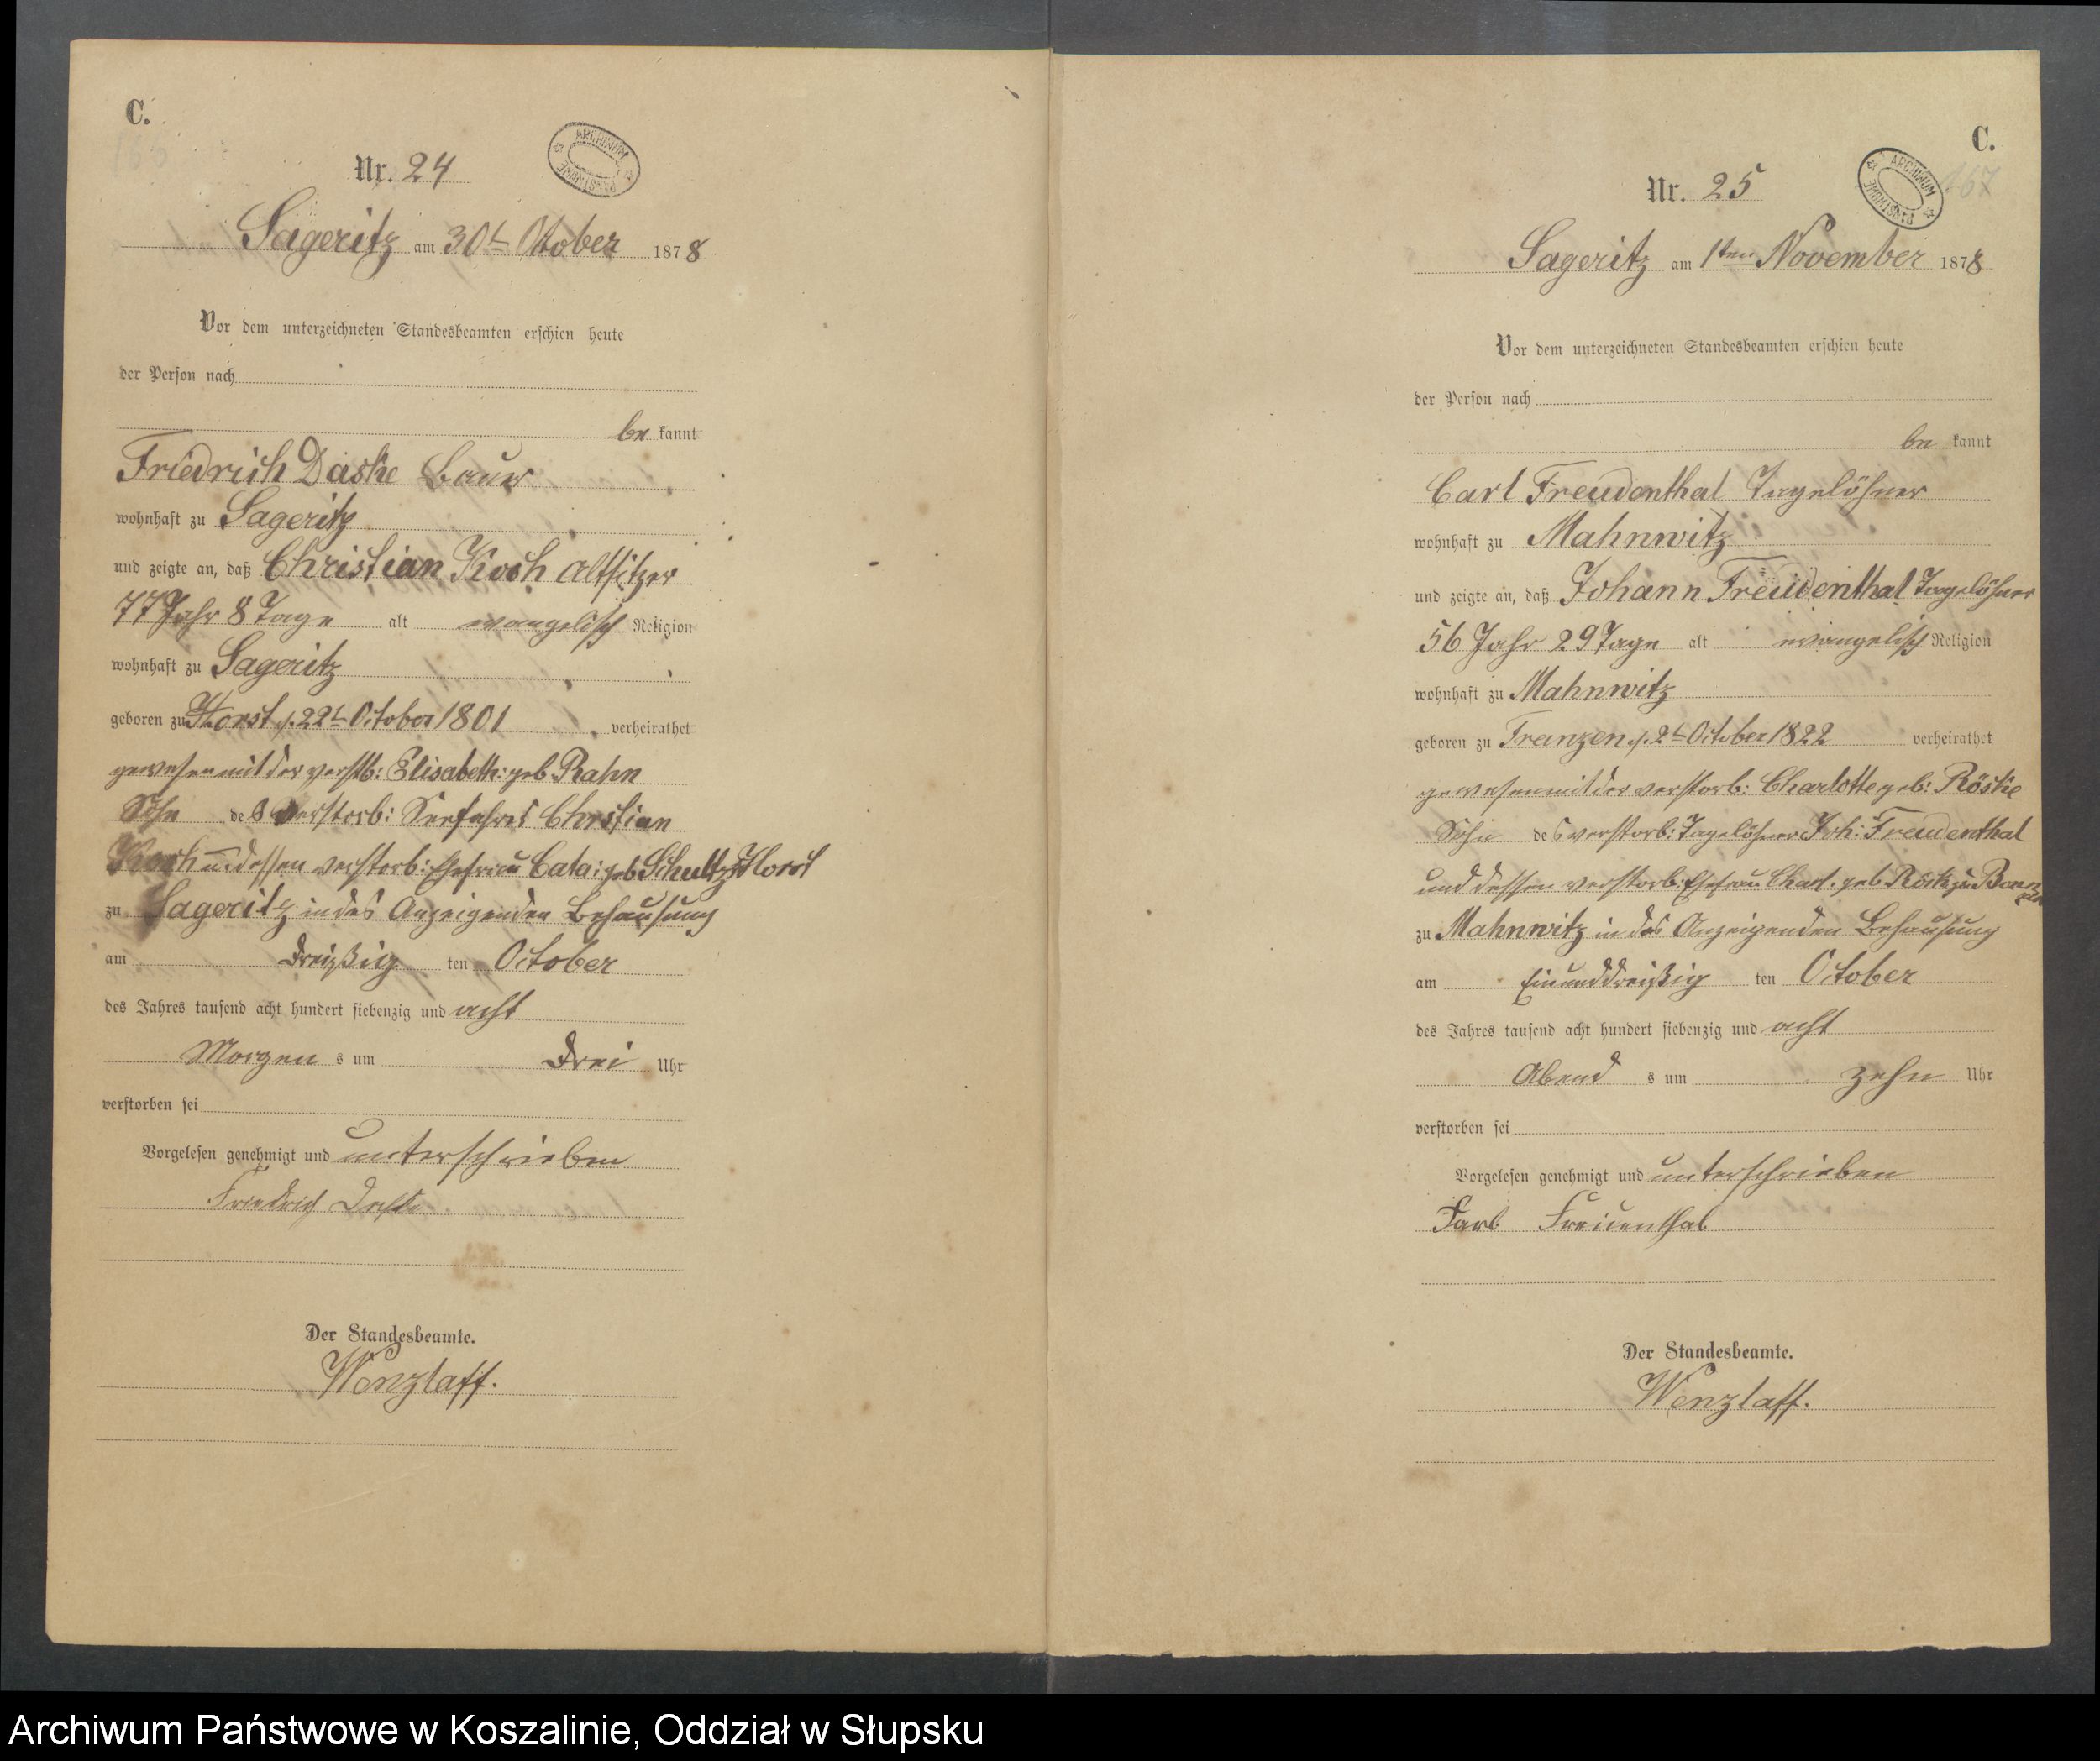 C.
Nr. 24
ARCHIWUM PAŃSTWOWE
Sageritz am 30t October 1878
Vor dem unterzeichneten Standesbeamten erschien heute
der Person nach
be kannt
Friedrich Daske Bauer
wohnhaft zu Sageritz
und zeigte an, daß Christian Koch Altsitzer
77 Jahr 8 Tage alt evangelisch Religion
wohnhaft zu Sageritz
geboren zu Horst d. 22t October 1801 verheirathet
gewesen mit der verstb: Elisabeth: geb Rahn
Sohn des verstorb: Seefahrer Christian
Koch u. dessen verstorb: Ehefrau Cata: geb Schultz Horst
zu Sageritz in des Anzeigenden Behausung
am dreizßig ten October
des Jahres tausend acht hundert siebenzig und acht
Morgen s um drei Uhr
verstorben sei
Vorgelesen genehmigt und unterschrieben
Friedrich
Der Standesbeamte.
Wenzlaff.
C.
167
Nr. 25
ARCHIWUM PAŃSTWOWE
Sageritz am 1ten November 1878
Vor dem unterzeichneten Standesbeamten erschien heute
der Person nach
be kannt
Carl Freudenthal Tagelöhner
wohnhaft zu Mahnwitz
und zeigte an, daß Johann Freudenthal Tagelöhner
56 Jahr 29 Tage alt evangelisch Religion
wohnhaft zu Mahnwitz
geboren zu Franzen d. 2t October 1822 verheirathet
gewesen mit der verstorb: Charlotte geb: Röske
Sohn des verstorb: Tagelöhner Joh: Freudenthal
und dessen verstorb: Ehefrau Charl. geb
zu Mahnwitz in des Anzeigenden Behausung
am Einunddreißig ten October
des Jahres tausend acht hundert siebenzig und acht
Abend s um zehn Uhr
verstorben sei
Vorgelesen genehmigt und unterschrieben
Carl Freuenthal
Der Standesbeamte.
Wenzlaff.
Archiwum Państwowe w Koszalinie, Oddział w Słupsku